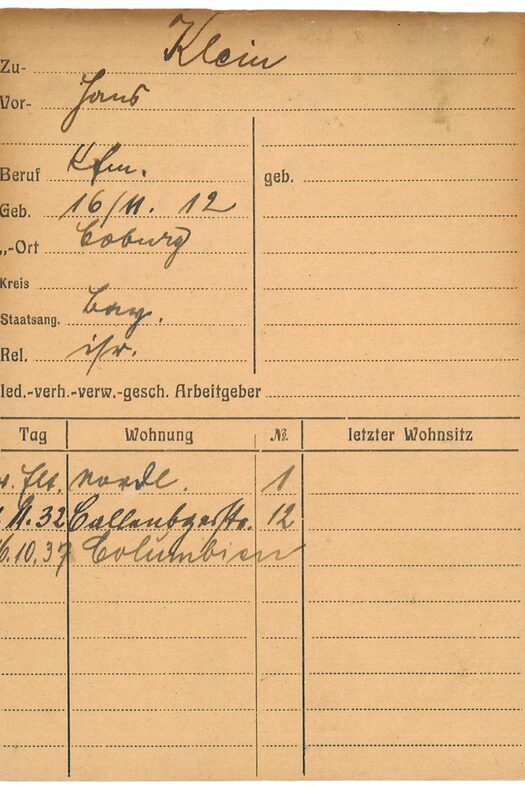 Zu- Klein
Vor- Hans
Beruf Kfm. geb.
Geb. 16/11. 12
„-Ort Coburg
Kreis
Staatsang. Bay.
Rel. isr.
led.-verh.-verw.-gesch. Arbeitgeber
Tag Wohnung № letzter Wohnsitz
Elt. Nordl. 1
.11.32 Callenbgerstr. 12
6.10.37 Columbien